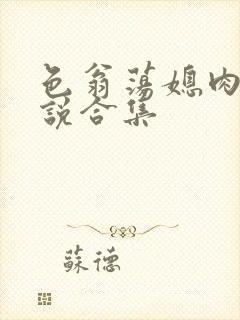 色翁荡媳肉
說合集
蘇德